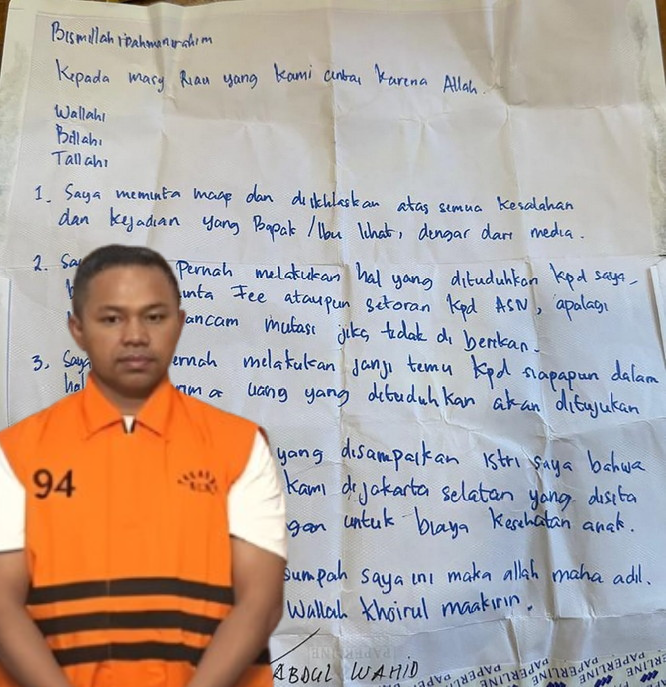 Bismillahirrahmanirrahim
Kepada masy Riau yang kami cintai karena Allah.
Wallahi
Billahi
Tallahi
1. Saya meminta maap dan diikhlaskan atas semua kesalahan
dan kejadian yang Bapak / Ibu lihat, dengar dari media.
2. Sa Pernah melakukan hal yang dituduhkan kpd saya
inta Fee ataupun setoran kpd ASN, apalagi
ancam mutasi jika tidak di berikan.
3. Saya ernah melakukan janji temu kpd siapapun dalam
hal rima uang yang dituduhkan akan ditujukan
yang disampaikan istri saya bahwa
kami di jakarta selatan yang disita
ngan untuk biaya kesehatan anak.
sumpah saya ini maka allah maha adil.
Wallah khoirul maakirin.
ABDUL WAHID
94
PAPERLINE PAPERLINE PAPERLINE